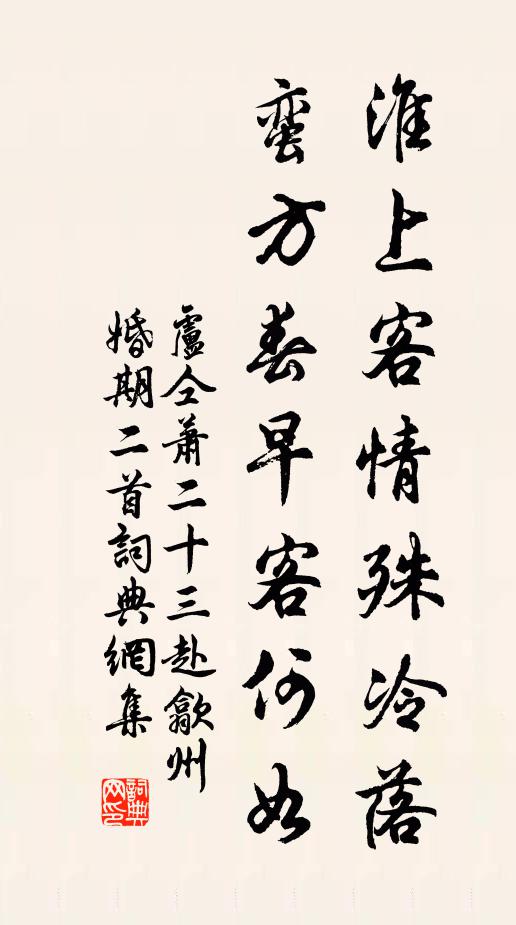 淮上客情殊冷落
蛮方春早客何如
盧仝蕭二十三赴歙州
婚期二首詞典網集
詞典网印